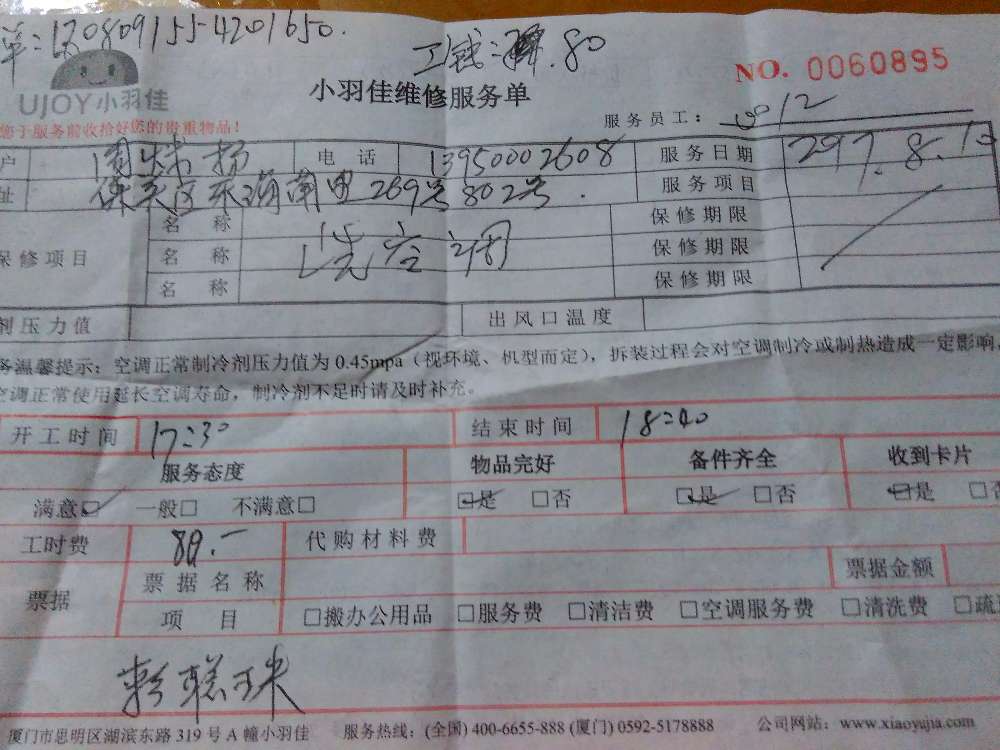 单:1708091554201650.
工钱: 80
NO. 0060895
UJOY小羽佳
小羽佳维修服务单
您于服务前收拾好您的贵重物品!
服务员工: 0012
户 周 扬 电话 13950002608 服务日期 297.8.10
址 南里269号802号. 服务项目
保修项目 名称 洗空调 保修期限
名称 保修期限
名称 保修期限
剂压力值 出风口温度
务温馨提示:空调正常制冷剂压力值为0.45mpa(视环境、机型而定),拆装过程会对空调制冷或制热造成一定影响,
空调正常使用延长空调寿命,制冷剂不足时请及时补充。
开工时间 17:30 结束时间 18:40
服务态度 物品完好 备件齐全 收到卡片
满意□ 一般□ 不满意□ □是 □否 □是 □否 □是 □否
工时费 80.- 代购材料费
票据 票据名称 票据金额
项目 □搬办公用品 □服务费 □清洁费 □空调服务费 □清洗费 □疏
厦门市思明区湖滨东路319号A幢小羽佳 服务热线:(全国) 400-6655-888 (厦门) 0592-5178888 公司网站:www.xiaoyujia.com